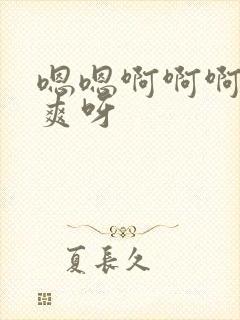 嗯嗯啊啊啊
爽呀
夏長久